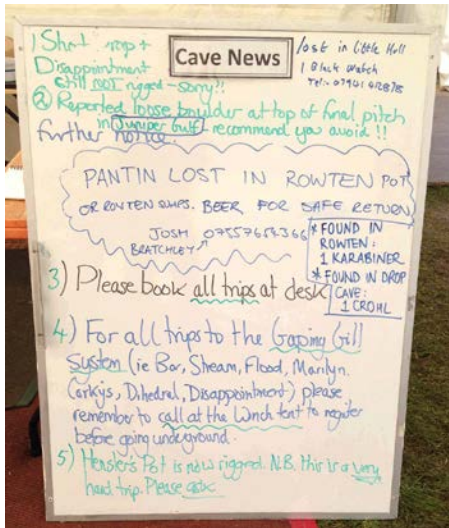 Cave News
1) Short drop +
Disappointment
still NOT rigged - sorry!!
lost in Little Hull
1 Black watch
Tel:-
2) Reported loose boulder at top of final pitch
in Juniper Gulf, recommend you avoid !!
further notice.
PANTIN LOST IN ROWTEN POT
OR ROWTEN SUMPS. BEER FOR SAFE RETURN
JOSH 07557654366
BRATCHLEY
* FOUND IN
ROWTEN:
1 KARABINER
* FOUND IN DROP
CAVE:
1 CROLL
3) Please book all trips at desk
4) For all trips to the Gaping Gill
System (ie Bar, Stream, Flood, Marilyn,
Corkys, Dihedral, Disappointment) please
remember to call at the Winch tent to register
before going underground.
5) Hensler's Pot is now rigged. N.B. this is a very
hard trip. Please ask.